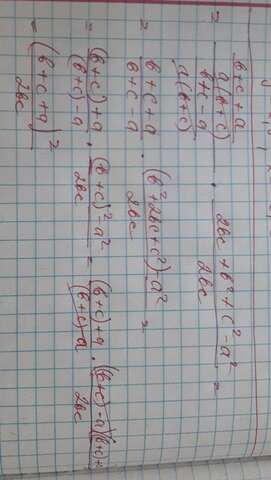 = \frac{\frac{b+c+a}{a(b+c)}}{\frac{b+c-a}{a(b+c)}} \cdot \frac{2bc+b^2+c^2-a^2}{2bc} =
= \frac{b+c+a}{b+c-a} \cdot \frac{(b^2+2bc+c^2)-a^2}{2bc} =
= \frac{(b+c)+a}{(b+c)-a} \cdot \frac{(b+c)^2-a^2}{2bc} = \frac{(b+c)+a}{(b+c)-a} \cdot \frac{((b+c)-a)((b+c)+}{2bc}
= \frac{(b+c+a)^2}{2bc}